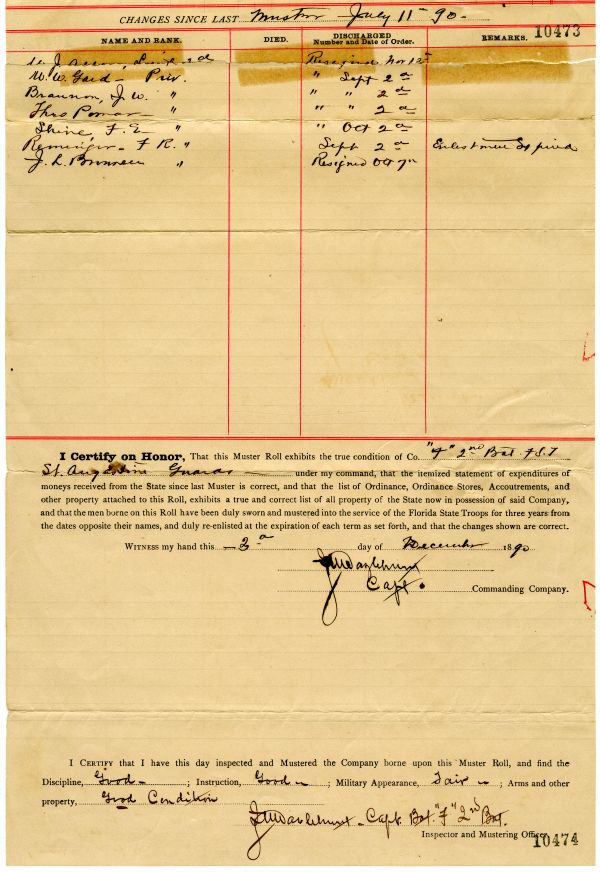 CHANGES SINCE LAST Muster July 11th 90-
10473
NAME AND RANK. DIED. DISCHARGED Number and Date of Order. REMARKS.
Resigned Nov 12th
W. W. Gard - Priv. " Sept 2d
Brannon, J. W. " " " 2d
Theo Pomar " " " 2d
Shine, F. E. " " Oct 2d
F. R. " Sept 2d Enlistment Expired
J. L. " Resigned Oct 7th
I Certify on Honor, That this Muster Roll exhibits the true condition of Co. "F" 2nd Bat F S T
St. Augustine Guards under my command, that the itemized statement of expenditures of
moneys received from the State since last Muster is correct, and that the list of Ordinance, Ordinance Stores, Accoutrements, and
other property attached to this Roll, exhibits a true and correct list of all property of the State now in possession of said Company,
and that the men borne on this Roll have been duly sworn and mustered into the service of the Florida State Troops for three years from
the dates opposite their names, and duly re-enlisted at the expiration of each term as set forth, and that the changes shown are correct.
WITNESS my hand this 2d day of December 1890
Capt. Commanding Company.
I CERTIFY that I have this day inspected and Mustered the Company borne upon this Muster Roll, and find the
Discipline, Good- ; Instruction, Good- ; Military Appearance, Fair - ; Arms and other
property, Good Condition
Capt. Bat. "F" 2nd Bat.
Inspector and Mustering Officer.
10474